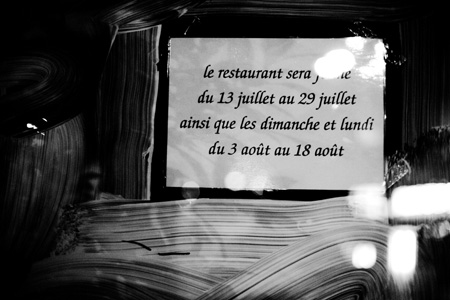 le restaurant sera
du 13 juillet au 29 juillet
ainsi que les dimanche et lundi
du 3 août au 18 août